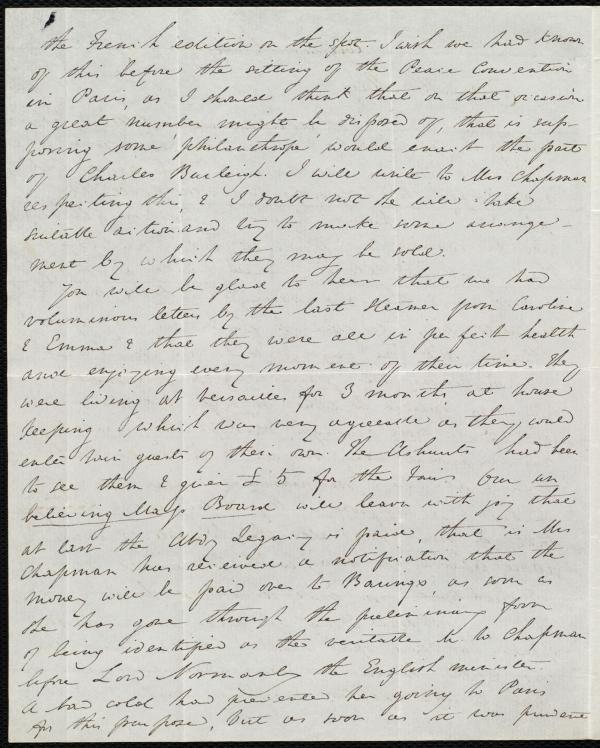 the French edition on the spot. I wish we had known
of this before the sitting of the Peace Convention
in Paris, as I should think that on that occasion
a great number might be disposed of, that is sup-
posing some philanthrope would enact the part
of Charles Burleigh. I will write to Mrs Chapman
respecting this, & I doubt not she will take
suitable action and try to make some arrange-
ment by which they may be sold.
You will be glad to hear that we had
voluminous letters by the last steamer from Caroline
& Emma & that they were all in perfect health
and enjoying every moment of their time. They
were living at Versailles for 3 months at house
keeping which was very agreeable as they could
entertain guests of their own. The Ashursts had been
to see them & given £5 for the Fair. Our un
believing Mass Board will learn with joy that
at last the Abdy Legacy is paid, that is Mrs
Chapman has received a notification that the
money will be paid over to Barings, as soon as
she has gone through the preliminary form
of being identified as the veritable M W Chapman
before Lord Normanby the English minister.
A bad cold had prevented her going to Paris
for this purpose, but as soon as it was prudent